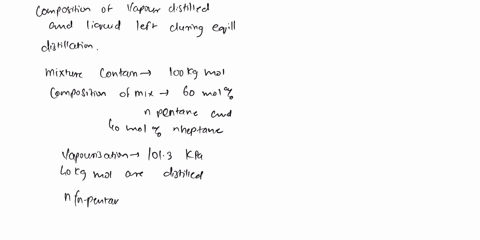 Composition of Vapour distilled
and liquid left during equill
distillation.
Mixture Contain → 100 Kg mol
Composition of mix → 60 mol %
n pentane and
40 mol % nheptane
Vapourisation → 101.3 KPa
40 kg mol are distilled
n fn-pentar